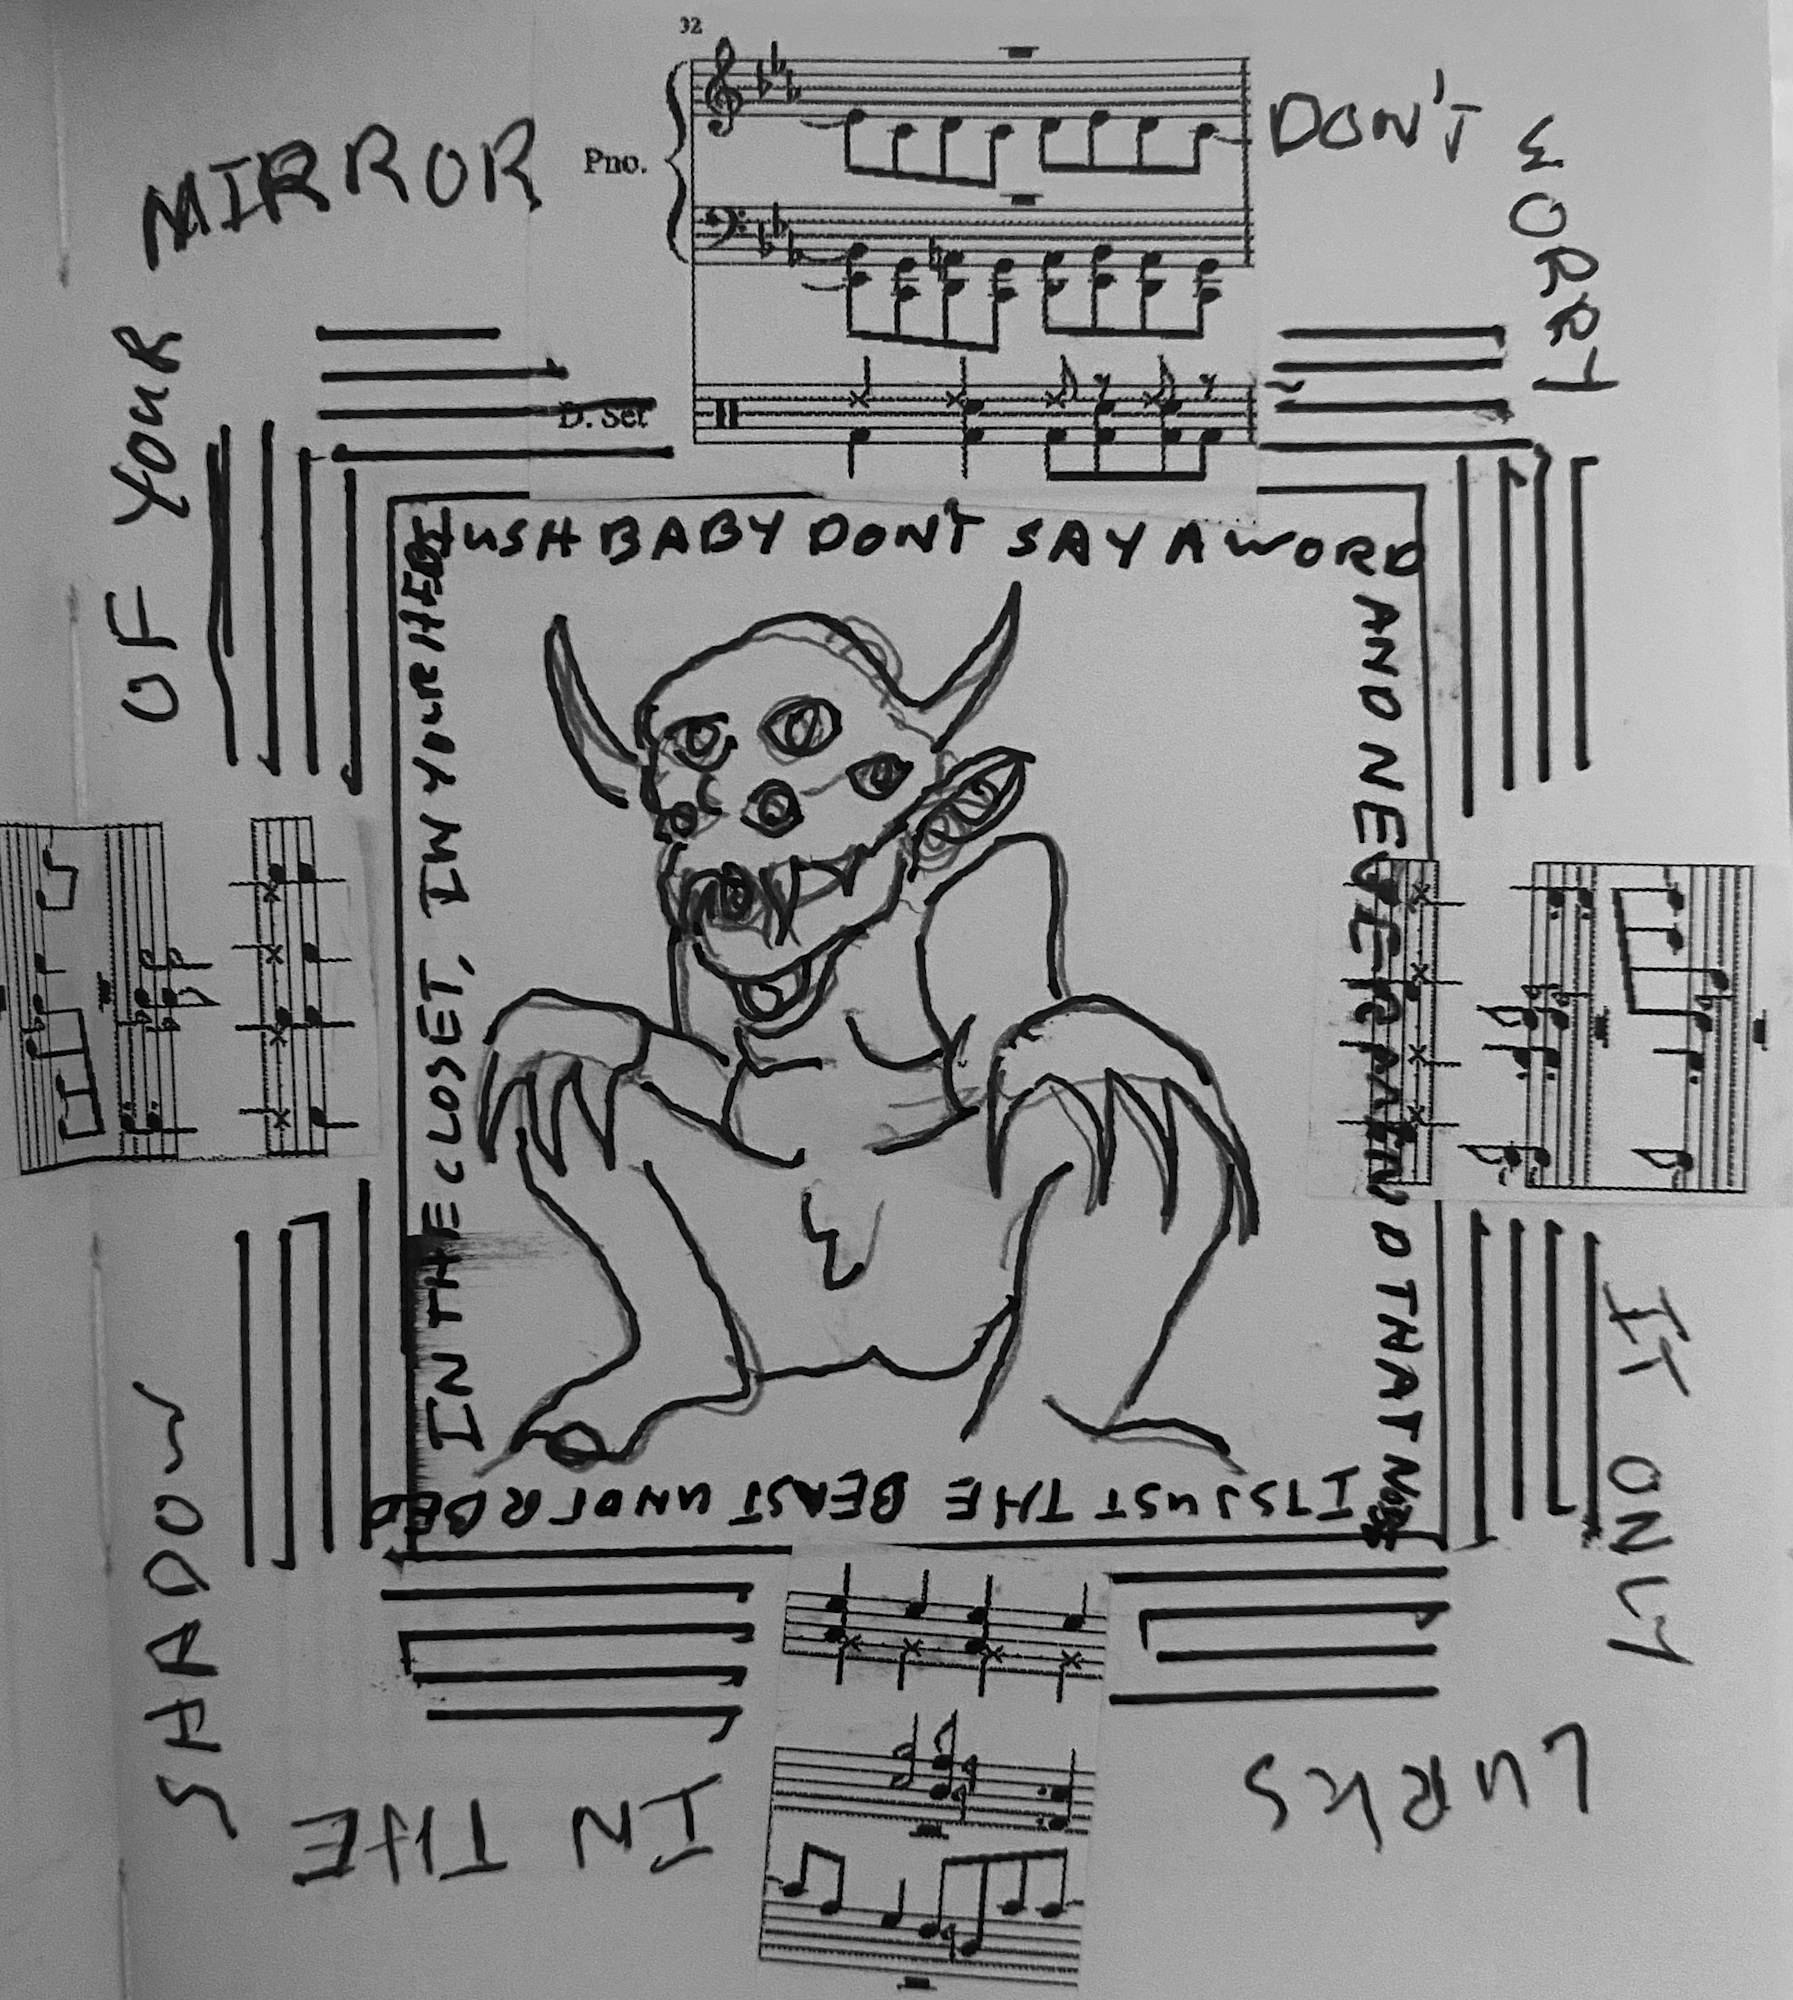 32
Pno.
D. Set
DON'T
WORRY
IT ONLY
LURKS
IN THE
SHADOW
OF YOUR
MIRROR
HUSH BABY DON'T SAY A WORD
AND NEVER MIND THAT NOISE
ITS JUST THE BEAST UNDER BED
IN THE CLOSET, IN YOUR HEAD